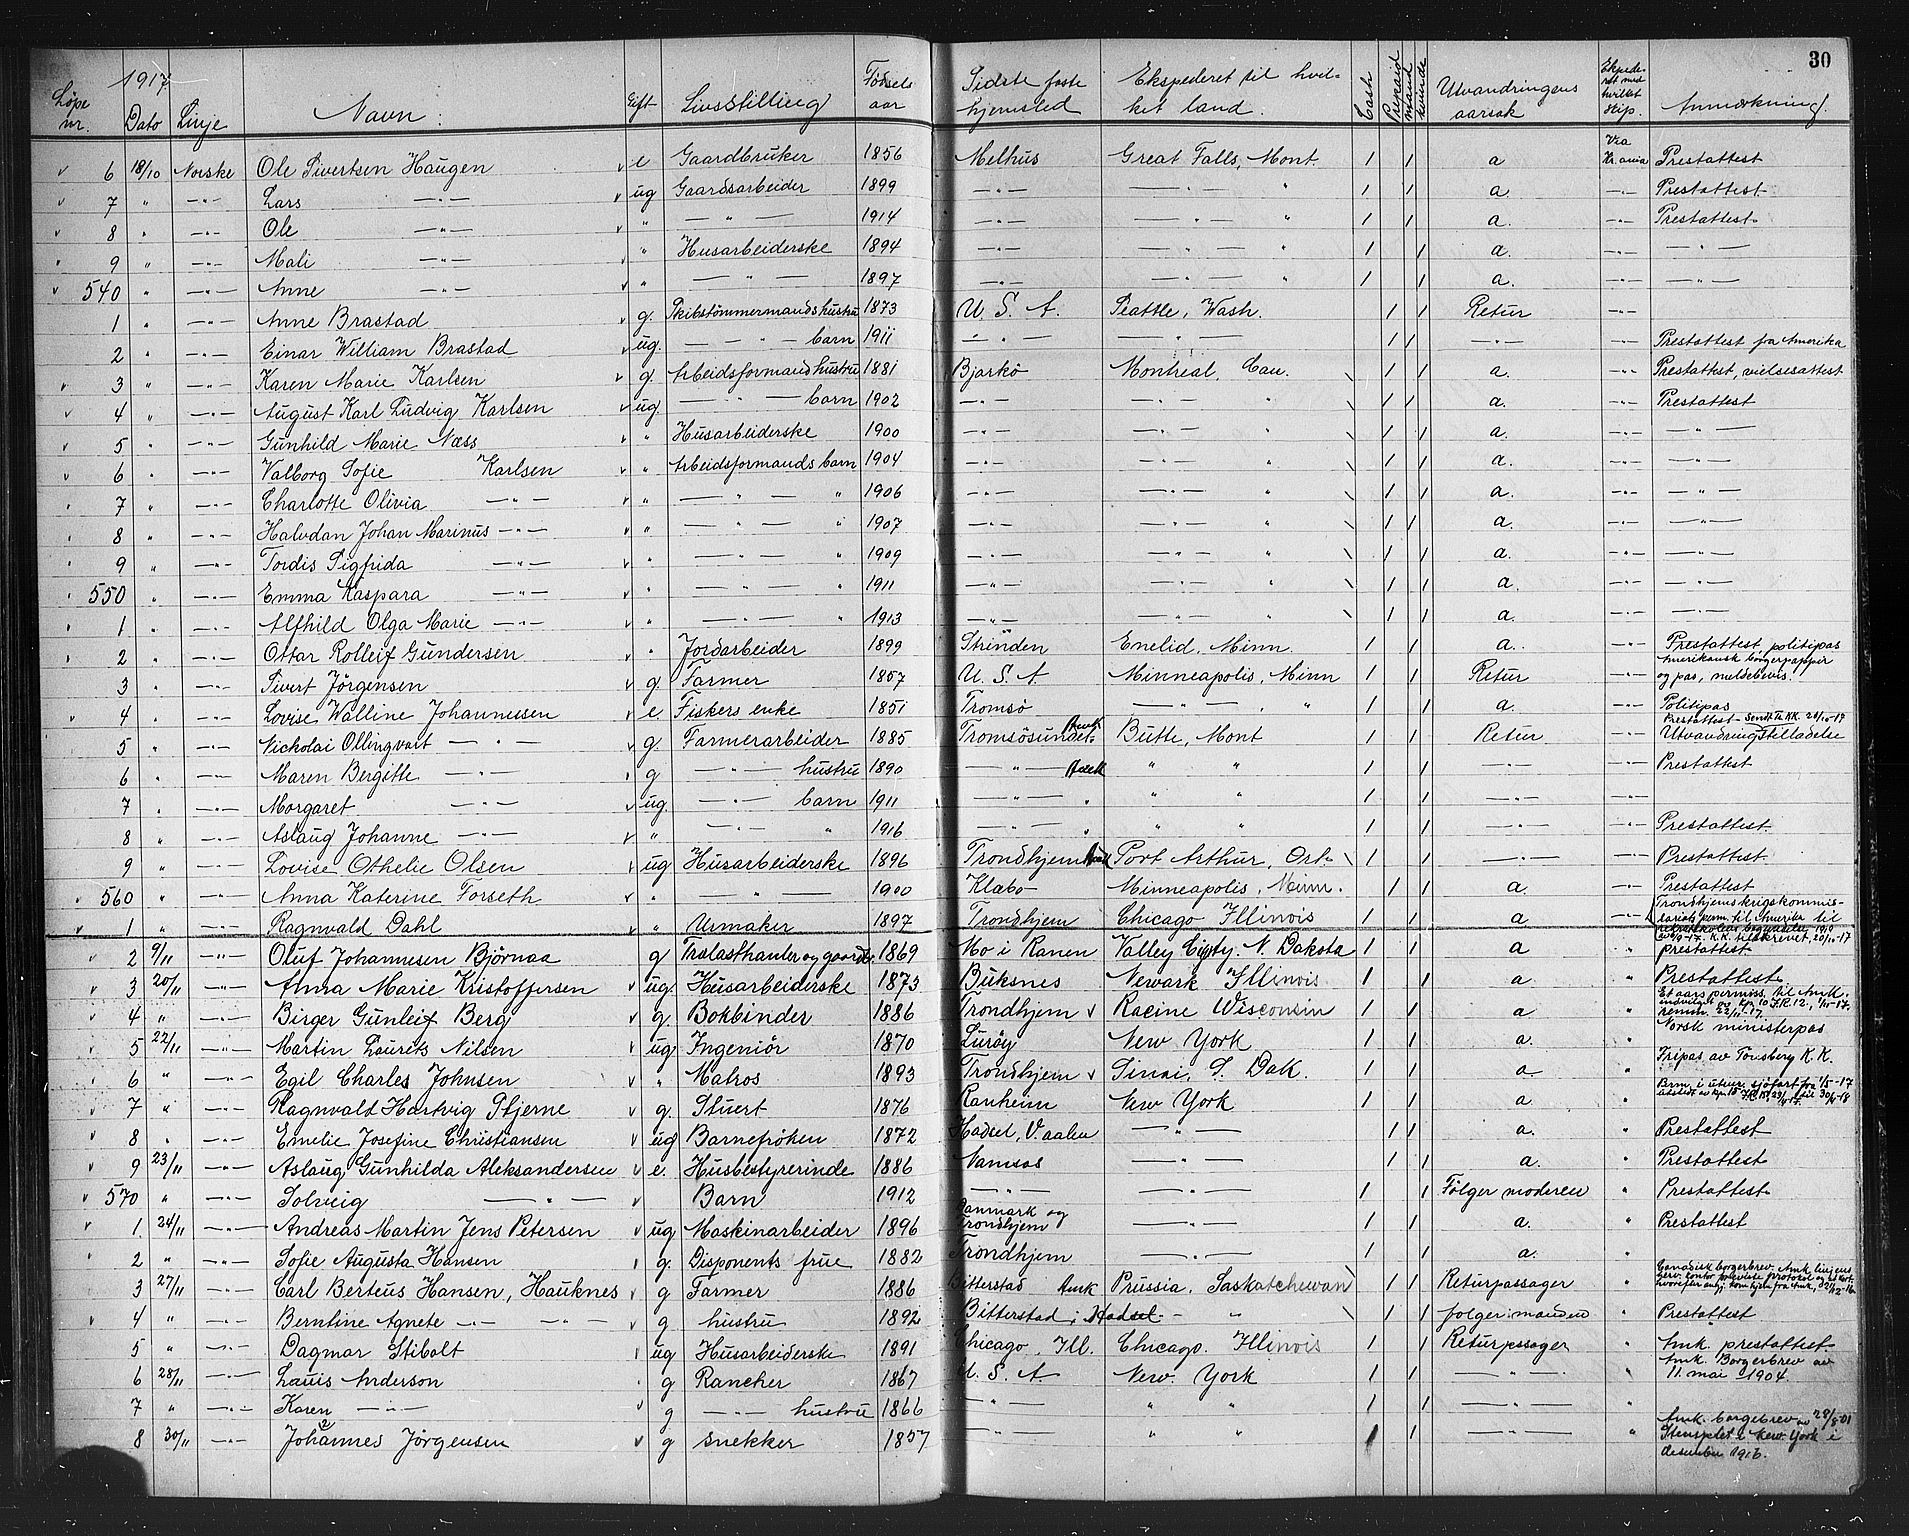 30
1917
Löpe nr. Dato Linje Navn: Gift Livsstilling Fødsels aar Sidste faste hjemsted Ekspederet til hvilket land. Cash Prepaid mand kvinde Utvandringens aarsak Ekspederet med hvilket skip. Anmerkning.
6 18/10 Norske Ole Sivertsen Haugen e Gaardbruker 1856 Melhus Great Falls, Mont. / / a Via Kr.ania Prestattest
7 " —"— Lars —"— ug Gaardsarbeider 1899 —"— —"— " / / a. —"— Prestattest
8 " —"— Ole —"— " —"— 1914 —"— —"— " / / a. —"— Prestattest
9 " —"— Mali —"— " Husarbeiderske 1894 —"— —"— " / / a. —"— —"—
540 " —"— Anne —"— " —"— 1897 —"— —"— " / / a. —"— —"—
1 " —"— Anne Brastad g. Skibstömmermandshustru 1873 U. S. A. Seattle, Wash. / / Retur —"—
2 " —"— Einar William Brastad ug. —"— barn 1911 —"— —"— / / —"— Prestattest fra Amerika
3 " —"— Karen Marie Karlsen g. Arbeidsformandhustru 1881 Bjarkö Montreal, Can. / / a. —"— Prestattest, vielsesattest
4 " —"— August Karl Ludvig Karlsen ug. —"— barn 1902 —"— —"— " / / a. —"— Prestattest
5 " —"— Gunhild Marie Næss " Husarbeiderske 1900 —"— —"— / / a. —"— —"—
6 " —"— Valborg Sofie Karlsen " Arbeidsformands barn 1904 —"— —"— " / / a. —"— —"—
7 " —"— Charlotte Olivia —"— " —"— " 1906 —"— —"— " / / a. —"— —"—
8 " —"— Halvdan Johan Marinus —"— " —"— " 1907 —"— —"— " / / a. —"— —"—
9 " —"— Tordis Sigfrida —"— " —"— " 1909 —"— —"— " / / a. —"— —"—
550 " —"— Emma Kaspara —"— " —"— " 1911 —"— —"— " / / a. —"— —"—
1 " —"— Alfhild Olga Marie —"— " —"— " 1913 —"— —"— " / / a. —"— —"—
2 " —"— Ottar Rolleif Gundersen " Jordarbeider 1899 Strinden Enelid, Minn. / / a. —"— Prestattest politipas
3 " —"— Sivert Jörgensen g. Farmer 1857 U. S. A Minneapolis, Minn / / Retur —"— Amerikansk borgerpapper og pas, meldebevis.
4 " —"— Lovise Walline Johannessen e. Fiskers enke 1851 Tromsö —"— , " " / / a. —"— Politipas
5 " —"— Nickolai Ollingvart —"— g. Farmerarbeider 1885 Tromsösundet Amk Butte, Mont / / Retur —"— Prestattest sendt Tr. KK. 20/10-17 Utvandringstilladelse
6 " —"— Maren Bergitte —"— g —"— hustru 1890 —"— " " / / —"— —"— Prestattest
7 " —"— Morgaret —"— ug. —"— barn 1911 —"— " " " / / —"— —"—
8 " —"— Aslaug Johanne —"— " —"— " 1916 —"— " " " / / —"— Prestattest
9 " —"— Lovise Othelie Olsen ug Husarbeiderske 1896 Trondhjem Port Arthur, Ort. / / —"— —"— Prestattest
560 " —"— Anna Katerine Forseth " —"— 1900 Klæbo Minneapolis, Minn. / / a. —"— Prestattest
1 " —"— Ragnvald Dahl " Urmaker 1897 Trondhjem Chicago Illinois / / a —"— Trondhjems krigskommissariats perm. til Amerika til
2 9/11 —"— Oluf Johannesen Bjørnaa g Trælasthanler og gaardbr. 1869 Mo i Ranen Valley City. N. Dakota / / a " Prestattest
3 20/11 —"— Anna Marie Kristoffersen ug. Husarbeiderske 1873 Buksnes Newark Illinois / / a " Prestattest
4 " —"— Birger Gunleif Berg g. Bokbinder 1886 Trondhjem Racine Wisconsin / / a " Et aars permiss. til Amk. indvilget av kp. 10 I.R. 12, 1/11-17. remm. 22/11-17.
5 22/11 —"— Martin Laurits Nilsen ug Ingeniör 1870 Luröy New York / / a. " Norsk ministerpas
6 " —"— Egil Charles Johnsen " Matros 1893 Trondhjem Sinai, S. Dak. / / a Fripas av Tönsberg K. K.
7 " —"— Ragnvald Hartvig Stjerne g. Stuert 1876 Ranheim New York / / a. "
8 " —"— Emelie Josefine Christiansen ug Barnefröken 1872 Hadsel, V. aalen —"— / / a. " Prestattest
9 23/11 —"— Aslaug Gunhilda Aleksandersen e. Husbestyrerinde 1886 Namsos —"— / / a. " Prestattest
570 " —"— Solveig —"— Barn 1912 —"— —"— / / Følger moderen " Prestattest
1. 24/11 —"— Andreas Martin Jens Petersen ug Maskinarbeider 1896 Danmark og Trondhjem —"— / / a. " Prestattest
2 " —"— Sofie Augusta Hansen g. Disponents frue 1882 Trondhjem —"— / / a. "
3 27/11 —"— Carl Berteus Hansen, Hauknes g Farmer 1886 Bitterstad Amk Prussia, Saskatchewan / / Returpassager "
4 " —"— Berntine Agnete —"— —"— g hustru 1892 Bitterstad i Hadsel — " / / følger manden " Prestattest
5 " —"— Dagmar Stibolt ug Husarbeiderske 1891 Chicago, Ill. Chicago. Illinois / / Returpssager " Amk. prestattest
6 28/11 —"— Lauis Anderson g Rancher 1867 U. S. A. New York / / —"— Amk. Borgerbrev av 11. mai 1904.
7 " —"— Karen —"— g —"— hustru 1866 —"— " " / / —"—
8 30/11 —"— Johannes Jörgensen g Snekker 1857 —"— " " / / —"— " Amk. borgebrev av 28/8-01 Stensplet i New York i desember 1916.